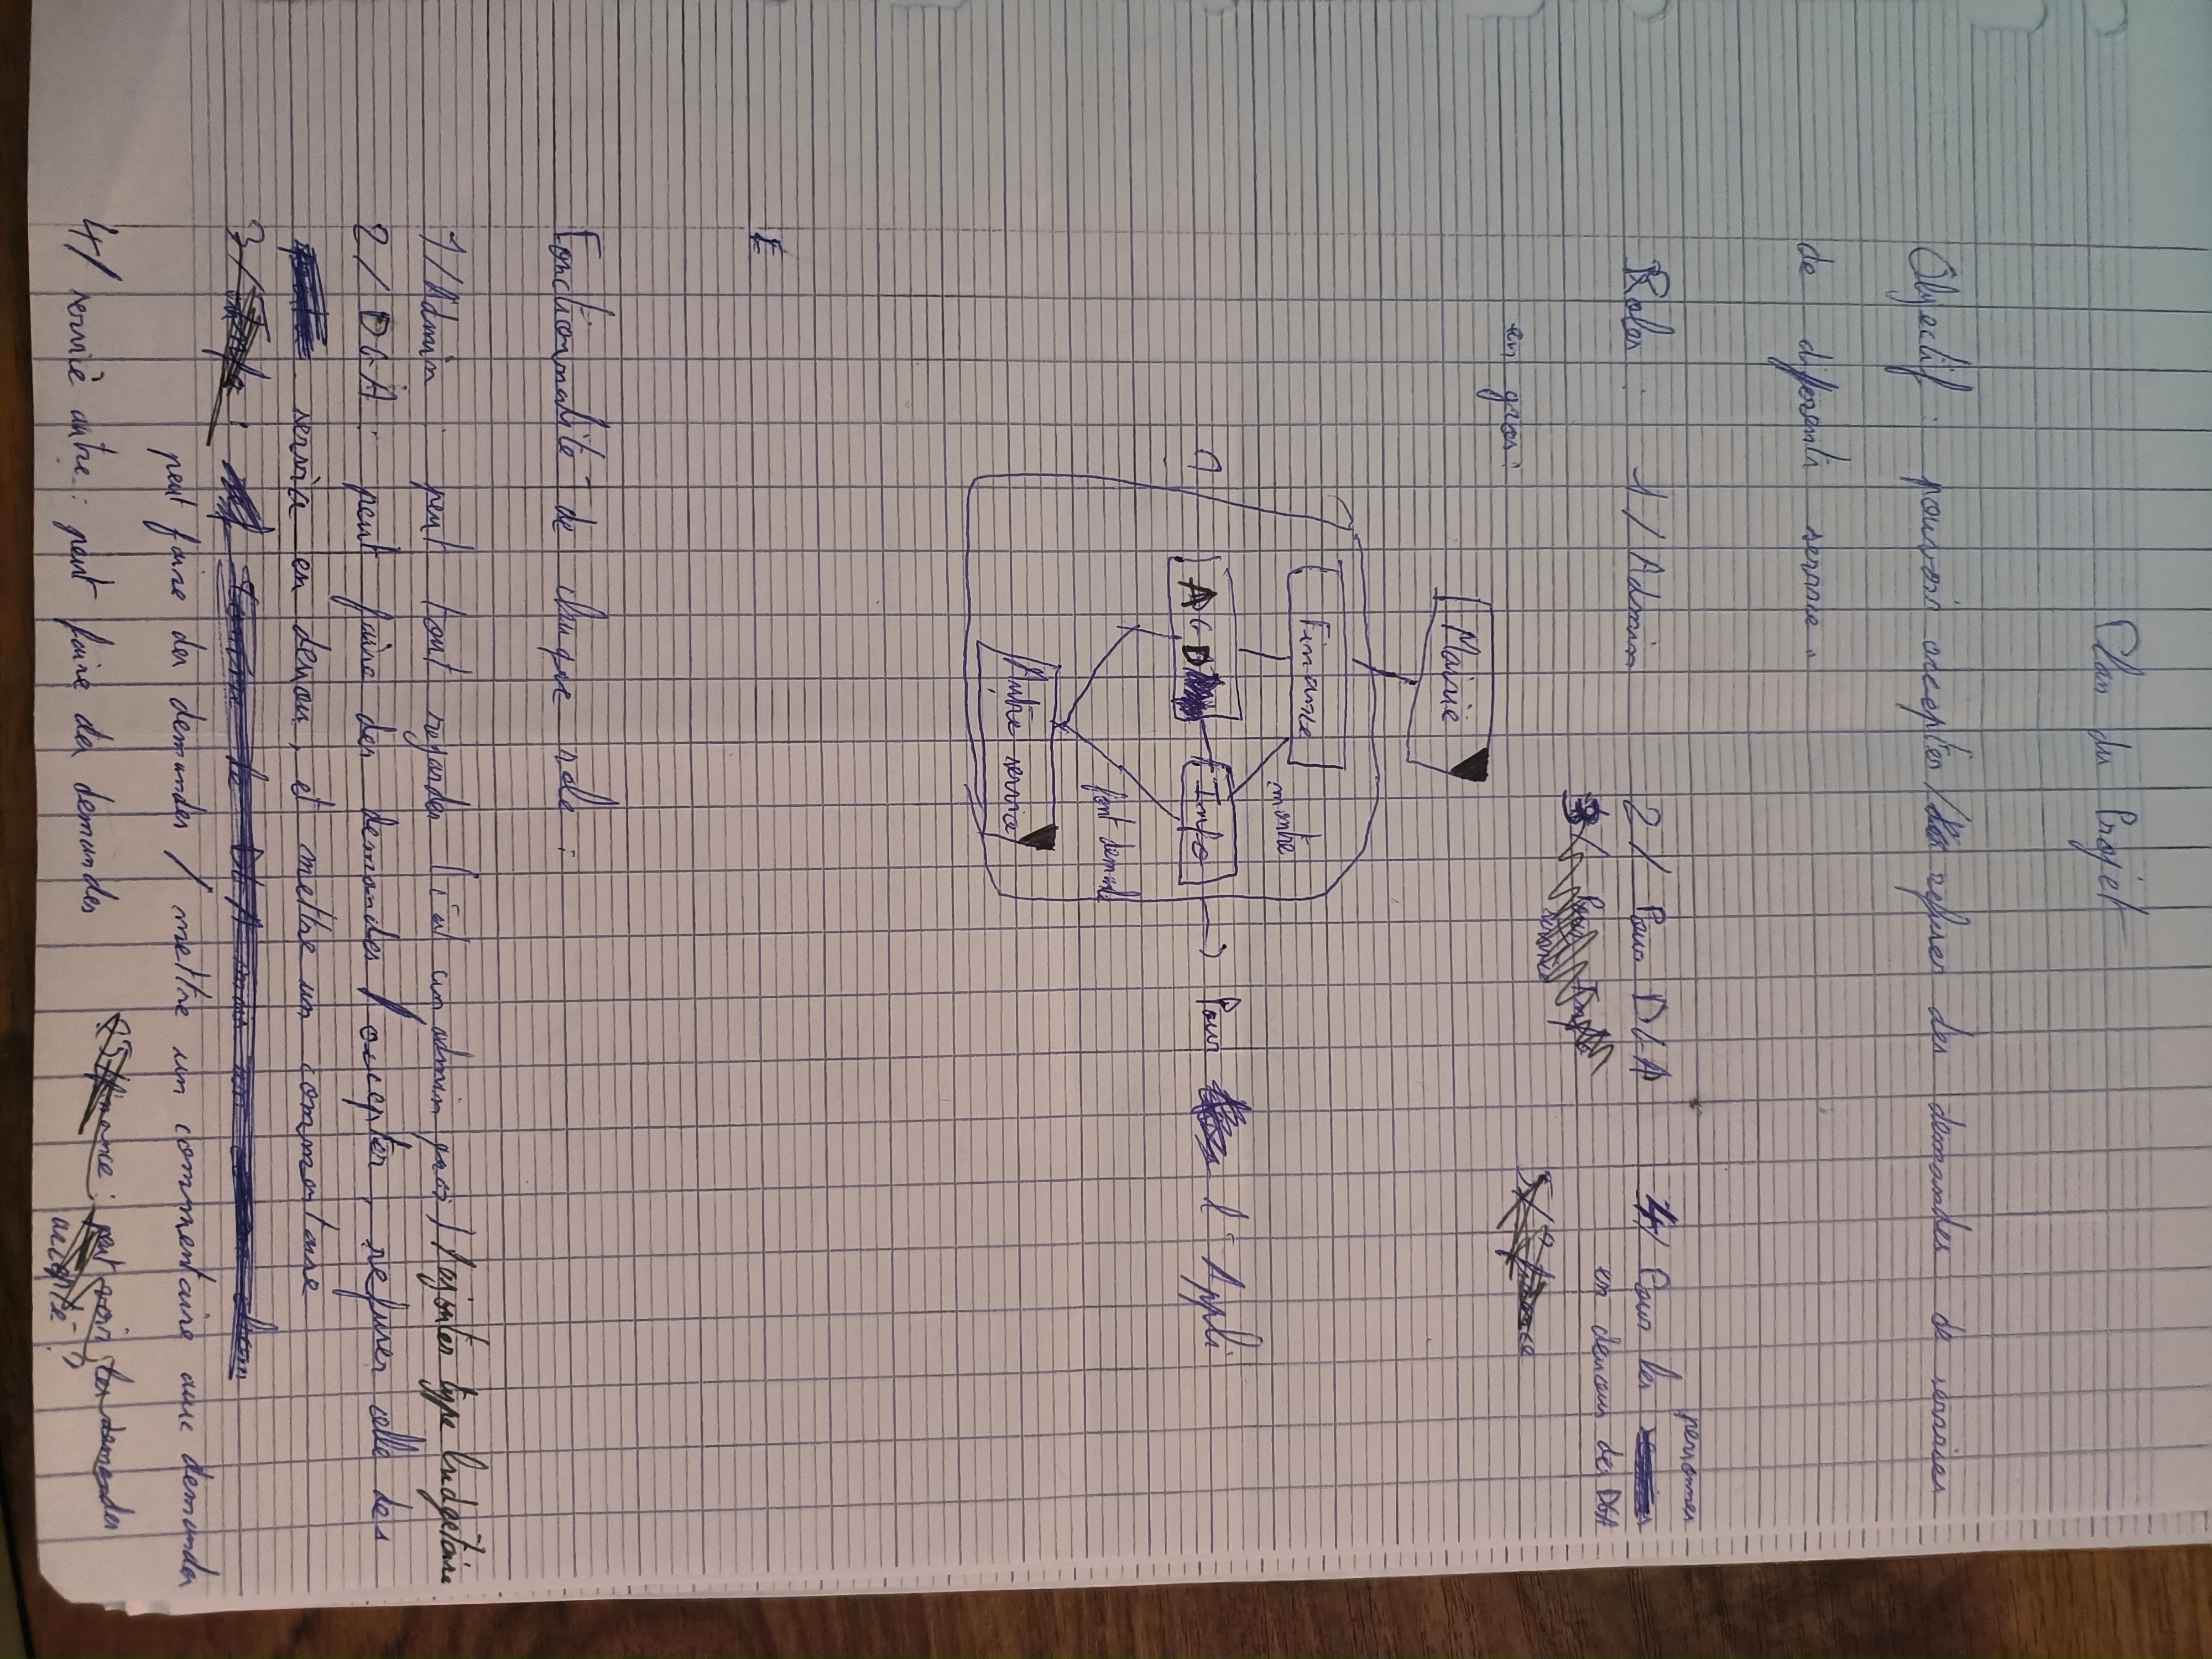 Plan du Projet
Objectif : pouvoir accepter / refuser des demandes de services
de differents service.
personnes
Roles : 1 / Admin 2 / Pour DGA 4/ Pour les
en dessous des DGA
3/ Pour Info
service
5/ ? finance
en gros :
Mairie
Finance
montre
AGD Info -> Pour l'Appli
?
font demande
Autre service
E
Fonctionnalité de chaque role :
1/Admin : peut tout regarder (c'est un admin quoi) / ajouter type budgétaire
2/ DGA : peut faire des demandes / accepter, refuser celle des
service en dessou, et mettre un commentaire
3/ Info : Comme le DGA mais un
peut faire des demandes / mettre un commentaire aux demandes
4/ service autre : peut faire des demandes
?5/finance : peut voir les demandes
accepté ?